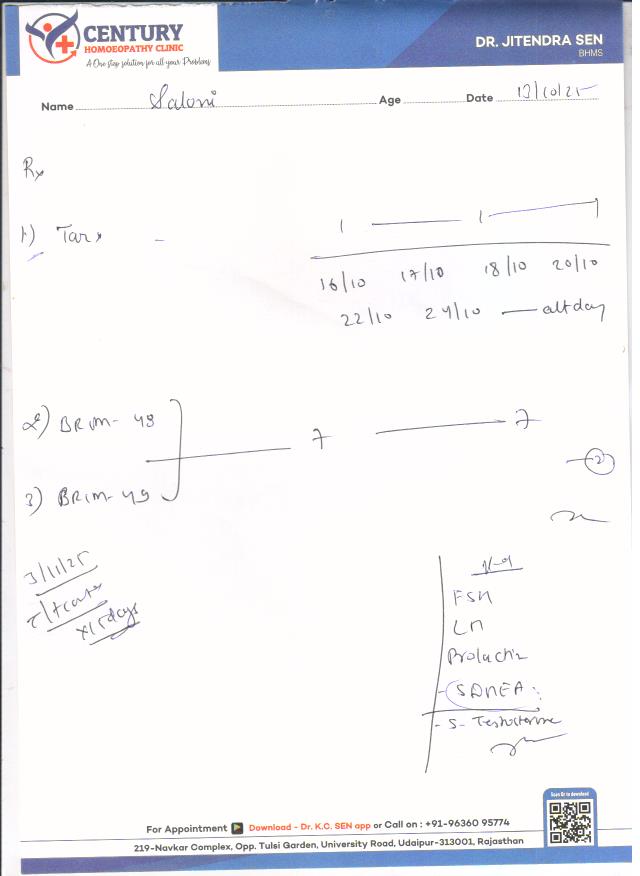 CENTURY
HOMOEOPATHY CLINIC
A One stop solution for all your Problems
DR. JITENDRA SEN
BHMS
Name Saloni Age Date 13/10/25
Rx
1) Tarx - 1 — 1 — 1
16/10 17/10 18/10 20/10
22/10 24/10 — alt day
2) BRIM-48
7 — 7
3) BRIM-49
2
3/11/25
x15days
FSH
LH
Prolactin
- SDHEA
- S- Testosterone
Scan Qr to download
For Appointment Download - Dr. K.C. SEN app or Call on : +91-96360 95774
219-Navkar Complex, Opp. Tulsi Garden, University Road, Udaipur-313001, Rajasthan